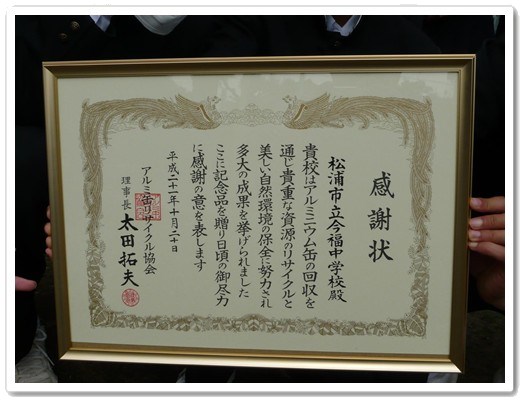 感謝状
松浦市立今福中学校殿
貴校はアルミニウム缶の回収を
通じ貴重な資源のリサイクルと
美しい自然環境の保全に努力され
多大の成果を挙げられました
ここに記念品を贈り日頃の御尽力
に感謝の意を表します
平成二十一年十月二十日
アルミ缶リサイクル協会
理事長 太田拓夫